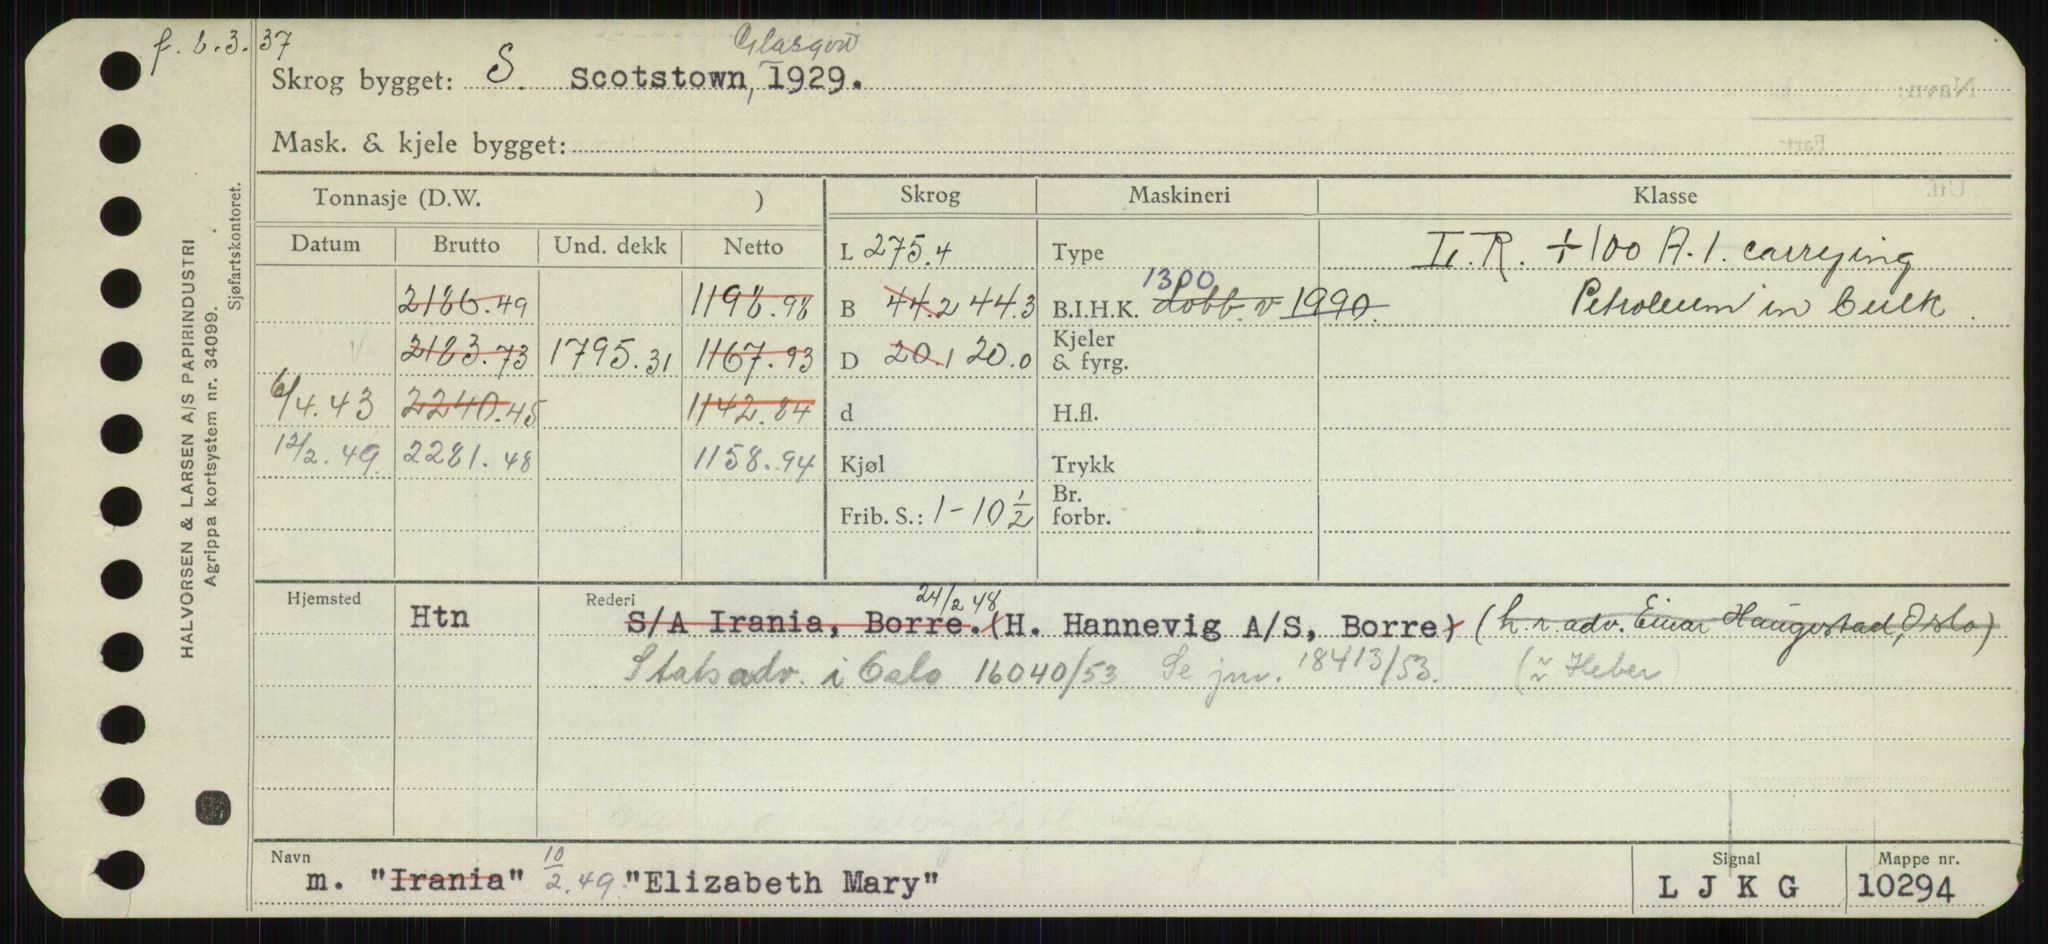 f. 2.3.37
Glasgow
Skrog bygget: S. Scotstown, 1929.
Mask. & kjele bygget:
Tonnasje (D.W. ) Skrog Maskineri Klasse
Datum Brutto Und. dekk Netto
L 275.4 Type L.R. +100 A.1. carrying
2186.49 1198.98 B 44.2 44.3 B.I.H.K. dobb.v 1990. 1300 Petroleum in bulk.
2183.73 1795.31 1167.93 D 20.1 20.0 Kjeler & fyrg.
6/4.43 2240.45 1142.84 d H.fl.
12/2.49 2281.48 1158.94 Kjøl Trykk
Frib. S.: 1-10 1/2 Br. forbr.
Hjemsted Rederi
24/2 48
Htn S/A Irania, Borre. (H. Hannevig A/S, Borre) (h.r.adv. Einar Haugestad, Oslo)
Statsadv. i Oslo 16040/53 Se jnr. 18413/53. (v Heber)
Navn Signal Mappe nr.
m. "Irania" 10/2.49. "Elizabeth Mary" L J K G 10294
HALVORSEN & LARSEN A/S PAPIRINDUSTRI
Agrippa kortsystem nr. 34099.
Sjøfartskontoret.